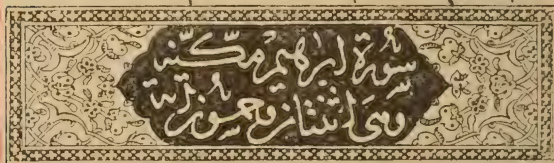 سورة ابراهيم مكية
وهي اثنتان وخمسون اية